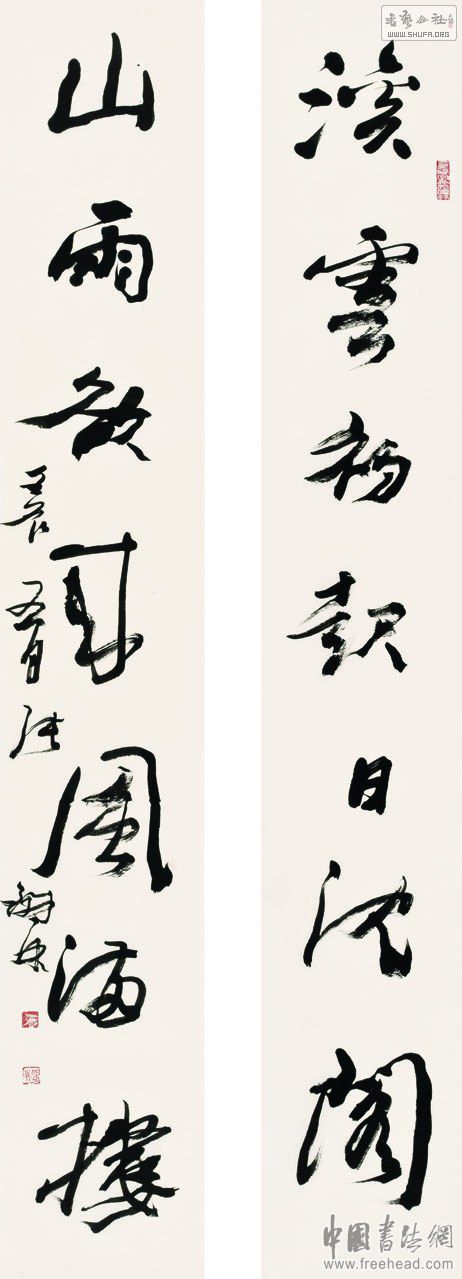 溪雲初起日沈閣
山雨欲來風滿樓
壬辰五月 張
WWW.SHUFA.ORG
中國書法網
www.freehead.com